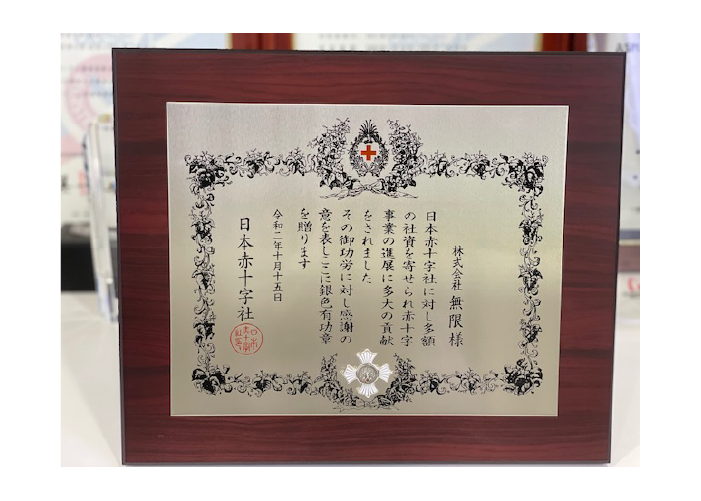 株式会社 無限 様
日本赤十字社に対し多額
の社資を寄せられ赤十字
事業の進展に多大の貢献
をされました
その御功労に対し感謝の
意を表しここに銀色有功章
を贈ります
令和二年十月十五日
日本赤十字社